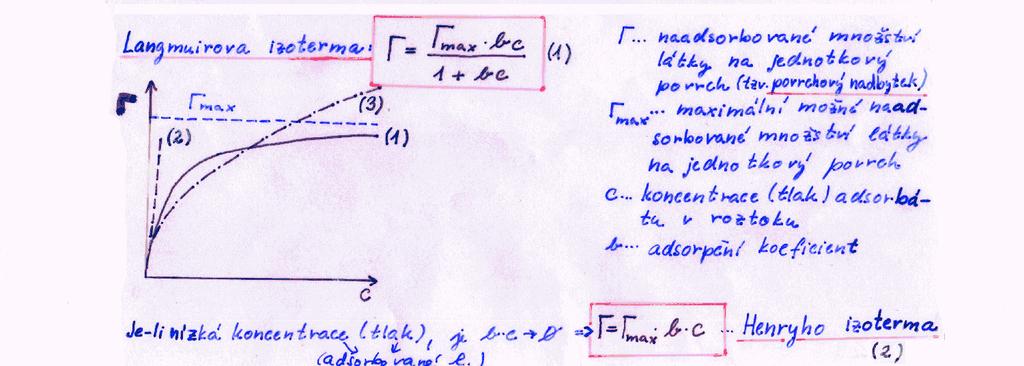 Langmuirova izoterma:
Γ = Γmax · bc / 1 + bc (1)
Γ
Γmax
(3)
(2)
(1)
c
Γ... naadsorbované množství
látky na jednotkový
povrch (tzv. povrchový nadbytek)
Γmax... maximální možné naad-
sorbované množství látky
na jednotkový povrch
c... koncentrace (tlak) adsorbá-
tu v roztoku
b... adsorpční koeficient
Je-li nízká koncentrace (tlak), je b·c → 0 ⇒ Γ = Γmax · b · c ... Henryho izoterma
(adsorbované l.)
(2)